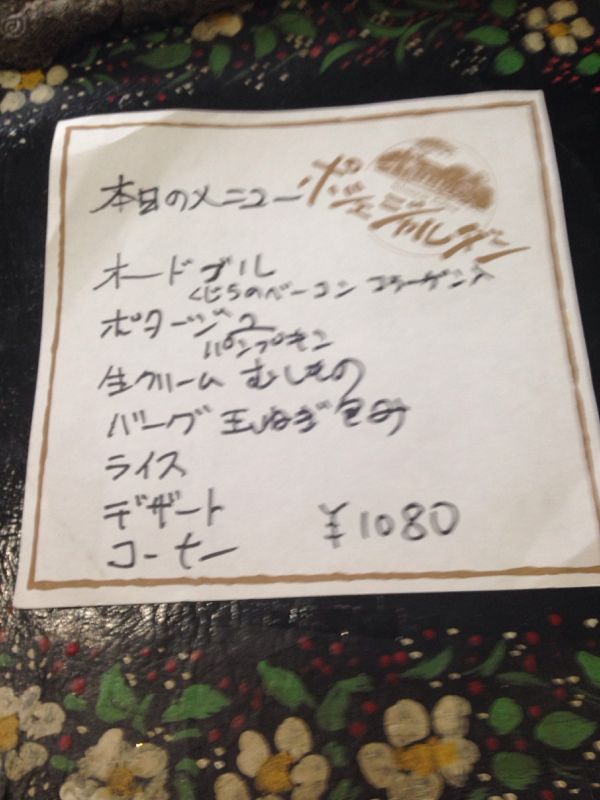 本日のメニュー
オードブル
くじらのベーコン コラーゲン入
ポタージュ
パンプキン
生クリーム むしもの
バーグ 玉ねぎ包み
ライス
デザート
コーヒー
¥1080